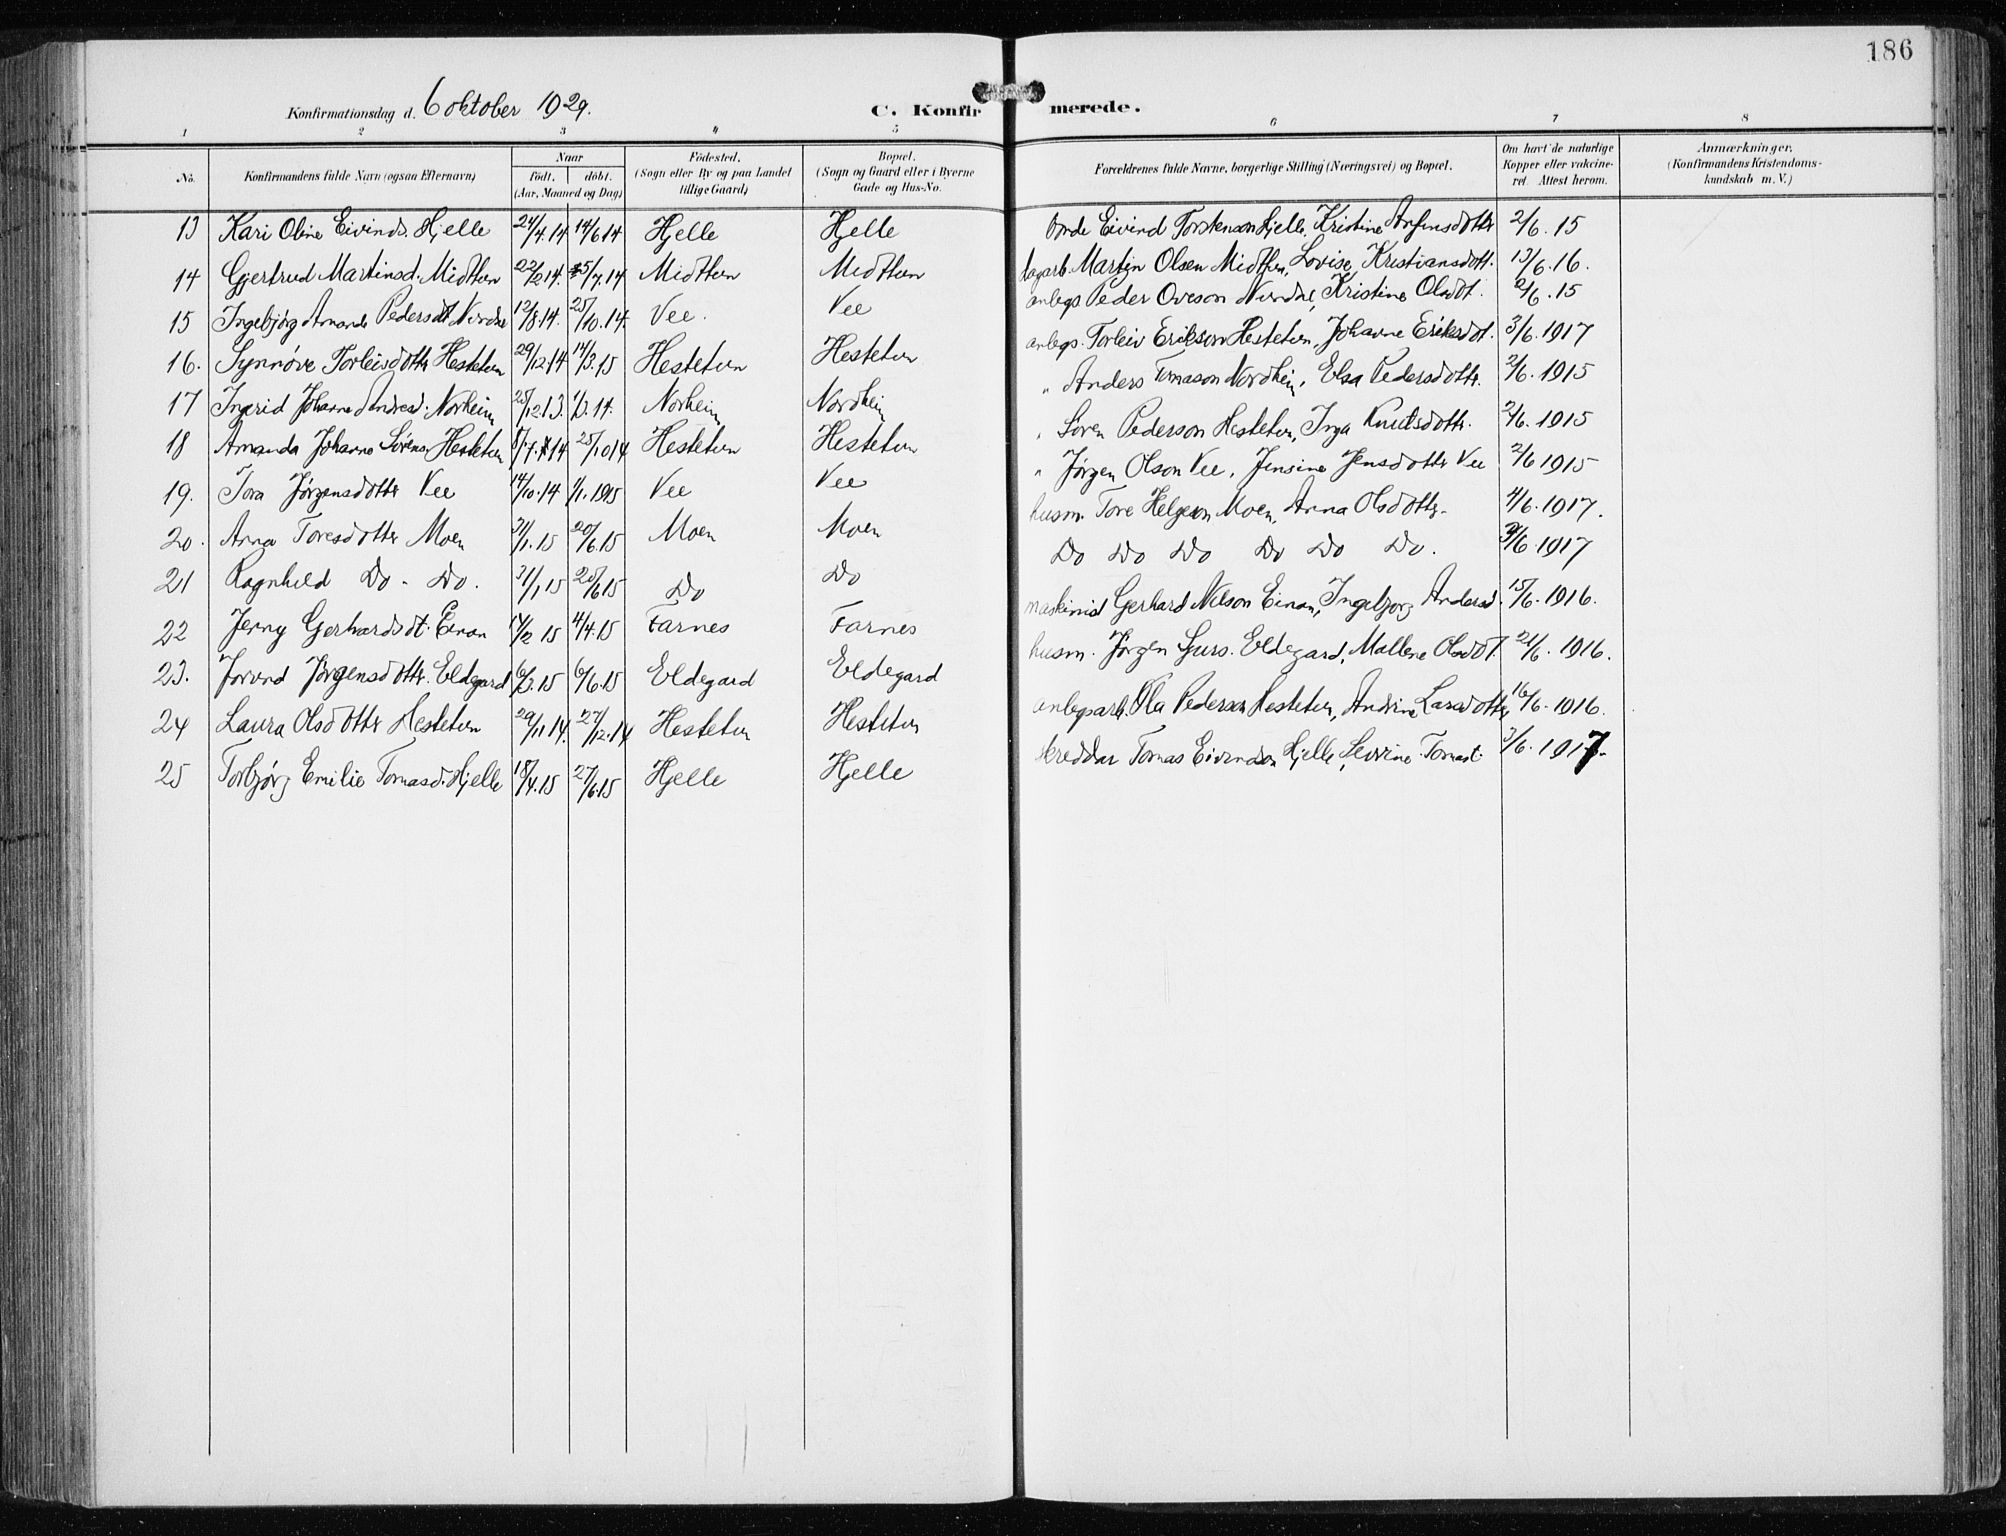 186
Konfirmationsdag d. 6 oktober 1929. C. Konfirmerede.
1 2 3 4 5 6 7 8
No. Konfirmandens fulde Navn (ogsaa Efternavn) Naar födt. döbt. (Aar, Maaned og Dag) Födested. (Sogn eller By og paa Landet tillige Gaard) Bopæl. (Sogn og Gaard eller i Byerne Gade og Hus-No. Forældrenes fulde Navne, borgerlige Stilling (Næringsvei) og Bopæl. Om havt de naturlige Kopper eller vakcineret. Attest herom. Anmærkninger. (Konfirmandens Kristendomskundskab m. V.)
13 Kari Oline Eivinds. Hjelle 24/4.14 14/6 14 Hjelle Hjelle Eivind Torstenson Hjelle, Kristine Anfinsdotter 2/6.15
14 Gjertrud Martinsd. Midthun 22/2 14. 5/7.14 Midthun Midthun Martin Olsen Midthun, Lovise Kristiansdott. 13/6.16.
15 Ingebjørg Amanda Pedersdt 12/8.14. 25/10.14. Vee. Vee anlegs Peder Oveson Kristine Olsdt. 2/6.15
16. Synnøve Torleivsdotter Hestetun 29/12.14 14/3.15 Hestetun Hestetun anlegs. Torleiv Erikson Hestetun, Johanne Eriksdt. 3/6.1917
17 Ingrid Johanne Andresd. Norheim 25/12 13. 1/3.14. Norheim Nordheim " Anders Tomason Nordheim, Elsa Pedersdotter. 2/6.1915
18 Amanda Johanne Sörens. Hestetun 8/7.14 25/10 14 Hestetun Hestetun " Sören Pederson Hestetun, Inga Knutsdotter. 2/6.1915
19. Tora Jørgensdotter Vee 14/10.14 1/1.1915 Vee Vee " Jørgen Olson Vee, Jensine Jensdotter Vee 2/6 1915
20. Anna Toresdotter Moen 31/1.15 20/6.15 Moen Moen husm. Tore Helgeson Moen, Anna Olsdotter. 4/6.1917.
21 Ragnhild Do. Do. 31/1 15 20/6 15 Do Do Do Do Do Do Do Do. /6 1917
22 Jenny Gerhardsdt. Einan 14/2 15 4/4.15 Farnes Farnes maskinist Gerhard Nilson Einan, Ingebjorg Andersd. 15/6.1916.
23. Jorunn Jørgensdotter. Eldegard 6/3.15 6/6.15 Eldegard Eldegard husm. Jørgen Sjurs. Eldegard, Mallene Olsdt. 21/6.1916.
24 Laura Olsdotter Hestetun 29/11 14. 27/12.14 Hestetun Hestetun anlegsarb. Ola Pederson Hestetun, Andrine Larsdotter 16/6.1916.
25 Torbjørg Emilie Tomasd. Hjelle 18/4.15 27/6.15 Hjelle Hjelle skreddar Tomas Eivindson Hjelle, Severine Tomasd. 3/6.1917.